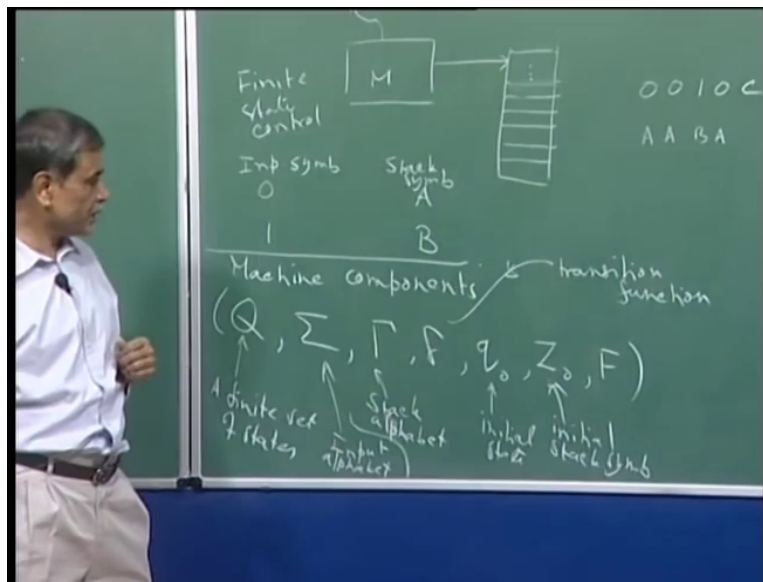 M
Finite
state
control
0 0 1 0 C
A A B A
Inp symb
Stack
symb
0 A
1 B
Machine components :
transition
function
(Q, Σ, Γ, δ, q₀, Z₀, F)
A finite set
of states
Input
alphabet
stack
alphabet
initial
state
initial
stack symb